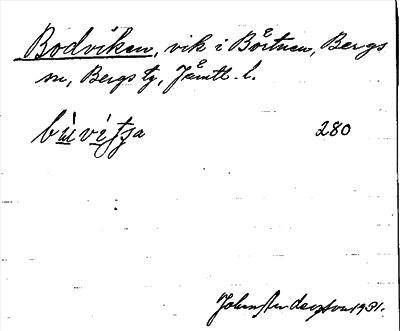 Bodviken, vik i Börtnen, Bergs
sn, Bergs tg, Jämtl. l.
280
John Anderson 1931.